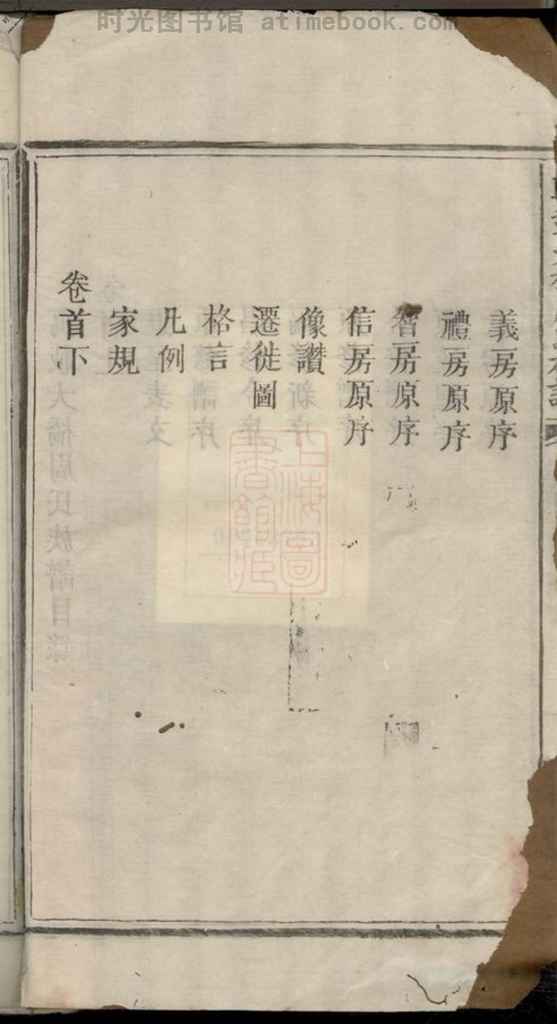 时光图书馆 atimebook.com
義房原序
禮房原序
智房原序
信房原序
像讃
遷徙圖
格言
凡例
家規
卷首下
上海圖
書館藏